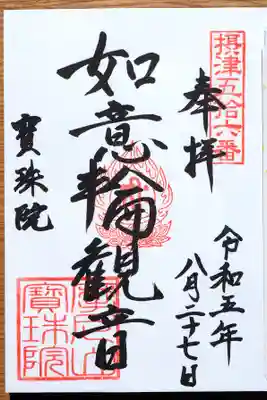 摂津五拾六番
奉拝
令和五年
八月二十七日
如意輪観音
寶珠院
寶珠院